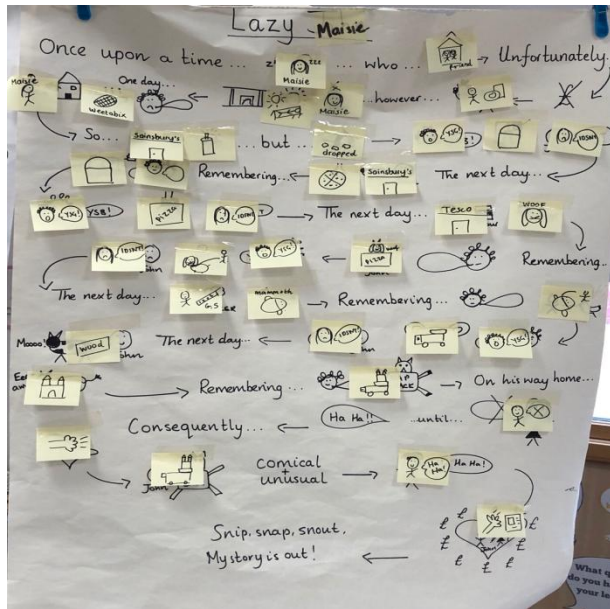 Lazy Maisie
Once upon a time... zzz Maisie who... Friend Unfortunately...
Maisie Weetabix One day... Maisie ...however...
So... Sainsbury's ...but... dropped YSG! IDISNT!
Remembering... Sainsbury's The next day...
YSG! YSB! PIZZA The next day... Tesco WOOF
IDISNT! YSG! PIZZA Remembering...
The next day... G.S mammoth Remembering...
Moooo! wood John The next day... IDISNT! YSG!
Remembering... On his way home...
Consequently... Ha Ha!! ...until...
John comical + unusual Ha Ha! Ha Ha!
Snip, snap, snout, £ £ £ £ £ £ £
My story is out!
What q
do you h
your le